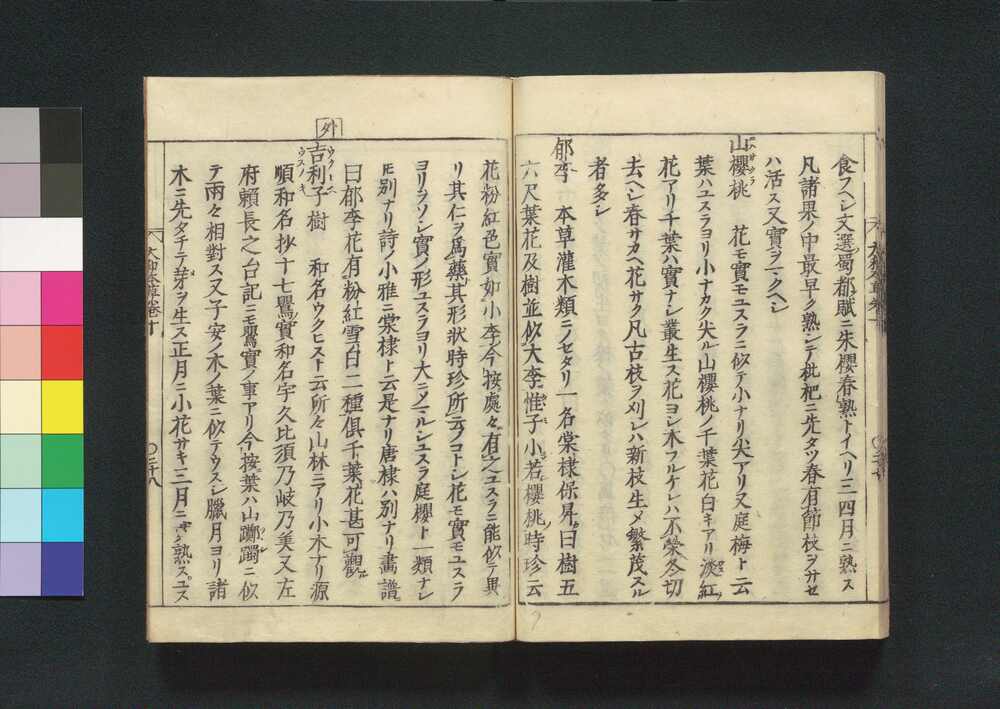 食フヘシ文選蜀都賦ニ朱櫻春熟トイヘリ三四月ニ熟ス
凡諸果ノ中最早ク熟シテ枇杷ニ先タツ春有節枝ヲサセ
ハ活ス又實ヲマクヘシ
山櫻桃 花モ實モユスラニ似テ小ナリ尖アリ又庭梅ト云
葉ハユスラヨリ小ナカク尖ル山櫻桃ノ千葉花白キアリ淡紅
花アリ千葉ハ實ナシ叢生ス花ヨシ木フルケレハ不榮冬切
去ヘシ春サカヘ花サク凡古枝ヲ刈レハ新枝生メ繁茂スル
者多シ
郁李 本草灌木類ニノセタリ一名棠棣保昇曰樹五
六尺葉花及樹並似大李惟子小若櫻桃時珍云
花粉紅色實如小李今按處々有之ユスラニ能似テ異
リ其仁ヲ爲藥其形狀時珍所云ノコトシ花モ實モユスラ
ヨリヲソシ實ノ形ユスラヨリ大ニメマルシユスラ庭櫻ト一類ナレ
𪜈別ナリ詩ノ小雅ニ棠棣ト云是ナリ唐棣ハ別ナリ畫譜
曰郁李花有粉紅雪白二種俱千葉花甚可觀
外
吉利子樹 和名ウクヒスト云所々山林ニアリ小木ナリ源
ウクヒス
ウスノキ
順和名抄十七鸎實和名宇久比須乃岐乃美又左
府賴長之台記ニモ鸎實ノ事アリ今按葉ハ山躑躅ニ似
テ兩々相對ス又子安ノ木ノ葉ニ似テウスシ臘月ヨリ諸
木ニ先タチテ芽ヲ生ス正月ニ小花サキ三月ニ熟スユス
大和本草卷十
〇三十八